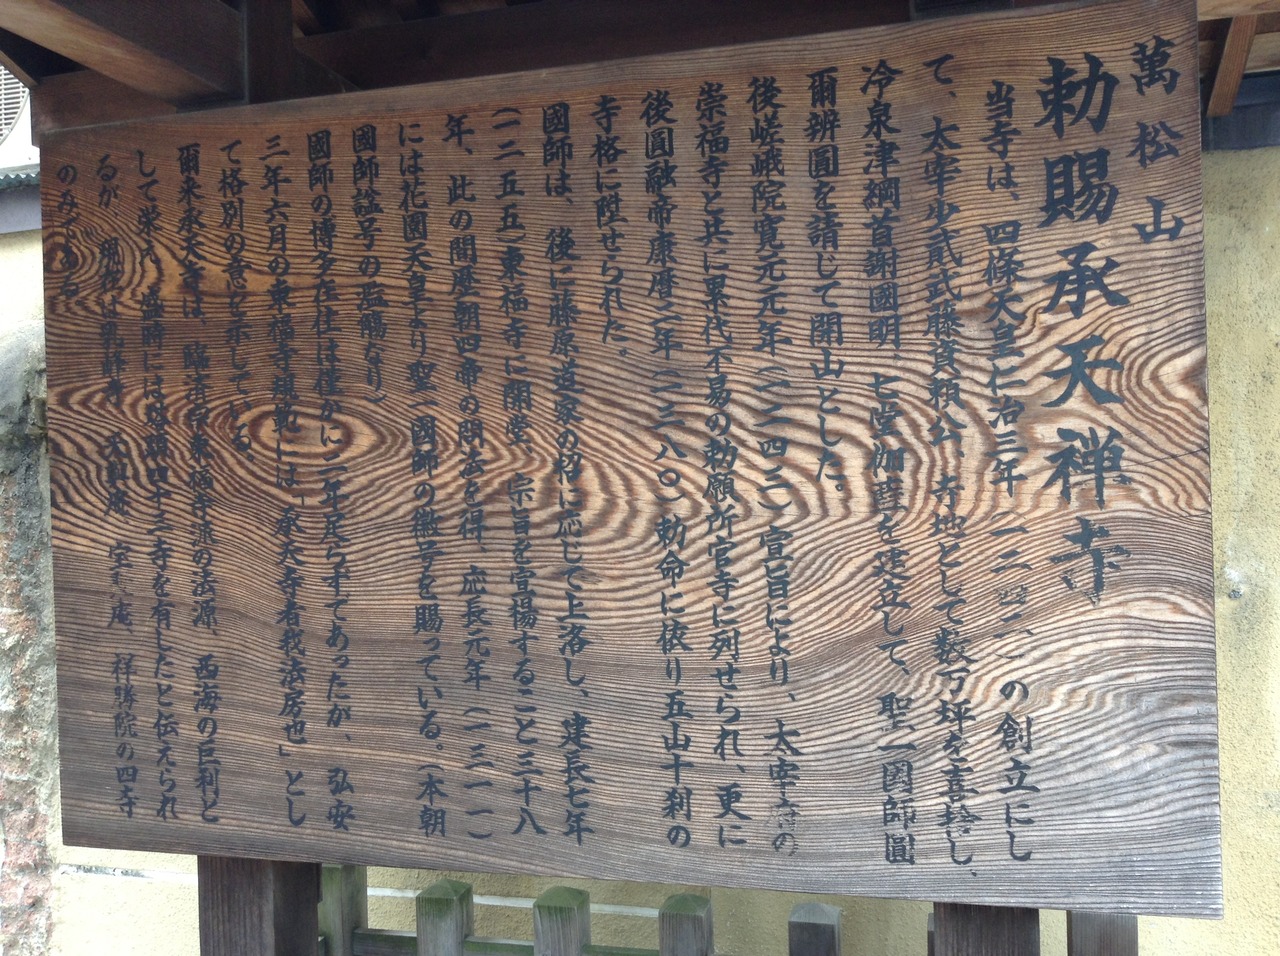 萬松山
勅賜承天禅寺
当寺は、四條天皇仁治三年 一二四二 の創立にし
て、太宰少貳武藤資頼公、寺地として数万坪を喜捨し
冷泉津綱首謝國明、七堂伽藍を建立して、聖一國師圓
爾辨圓を請じて開山とした。
後嵯峨院寛元元年（一二四三）宣旨により、太宰府の
崇福寺と共に累代不易の勅願所官寺に列せられ、更に
後圓融帝康暦二年（一三八〇）勅命に依り五山十刹の
寺格に陞せられた。
國師は、後に藤原道家の招に応じて上洛し、建長七年
（一二五五）東福寺に開堂、宗旨を宣揚すること三十八
年、此の間歴朝四帝の問法を得、応長元年（一三一一）
には花園天皇より聖一國師の徽号を賜っている。（本朝
國師諡号の濫觴なり）
國師の博多在住は僅かに二年足らずであったが、弘安
三年六月の東福寺規範には「承天寺者我法房也」とし
て格別の意を示している。
爾来承天寺は、臨済宗東福寺派の法源、西海の巨刹と
して栄え 盛時には塔頭四十三寺を有したと伝えられ
るが 現存は乳峰寺 天與庵 宝聚庵、祥勝院の四寺
のみである